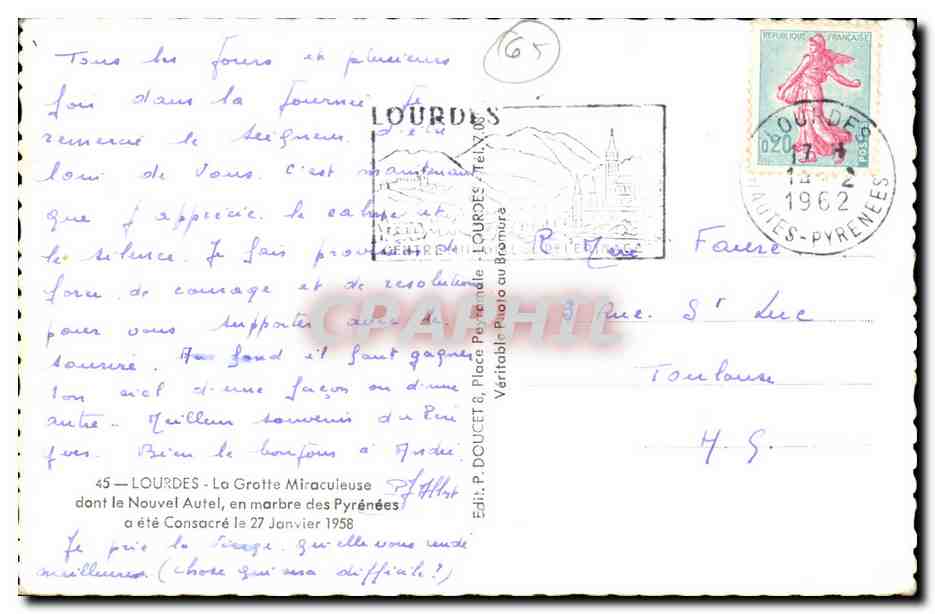 65
Tous les jours et plusieurs
fois dans la journée je
remercie le Seigneur d'être
loin de vous. C'est maintenant
que j'apprécie le calme et
le silence. Je fais provision de
force de courage et de resolution
pour vous supporter avec le
sourire. Au fond il faut gagner
son ciel d'une façon ou d'une
autre. Meilleur souvenir du Père
Yves. Bien le bonjour à André.
45 — LOURDES - La Grotte Miraculeuse
dont le Nouvel Autel, en marbre des Pyrénées
a été Consacré le 27 Janvier 1958
Je prie la Vierge qu'elle vous rende
meilleures (chose qui sera difficile ?)
Edit. P. DOUCET 8, Place Peyramale - LOURDES - Tél. 7.08
Véritable Photo au Bromure
LOURDES
REPUBLIQUE FRANÇAISE
0,20
POSTES
LOURDES
17
1962
HAUTES-PYRENEES
Faure
3 Rue St Luc
Toulouse
H. G.
CRAPHIL